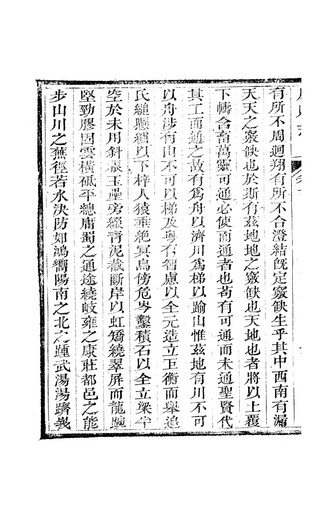 有所不周迴翔有所不合澄結旣定竅缺生乎其中西南有漏
天天之竅缺也於斯有茲地地之竅缺也天地也者將以上覆
下幬含畜萬靈可通必使而通者也苟有可通而未通聖賢代
其工而通之故有爲舟以濟川爲梯以踰山惟茲地有川不可
以舟涉有山不可以梯及粤有智慮以全元造立巨衡而舉追
氏縋懸纜以下梓人猿垂絶冥鳥傍危岑鑿積石以全立梁
空於未用斜根玉壘旁綴青泥截斷岸以虹矯繞翠屏而龍蜿
堅勁膠固雲橫砥平總庸蜀之通途繞岐雍之康莊都邑之能
步山川之蕪徑若水決防如鴻嚮陽南之北之踵武湯湯躋